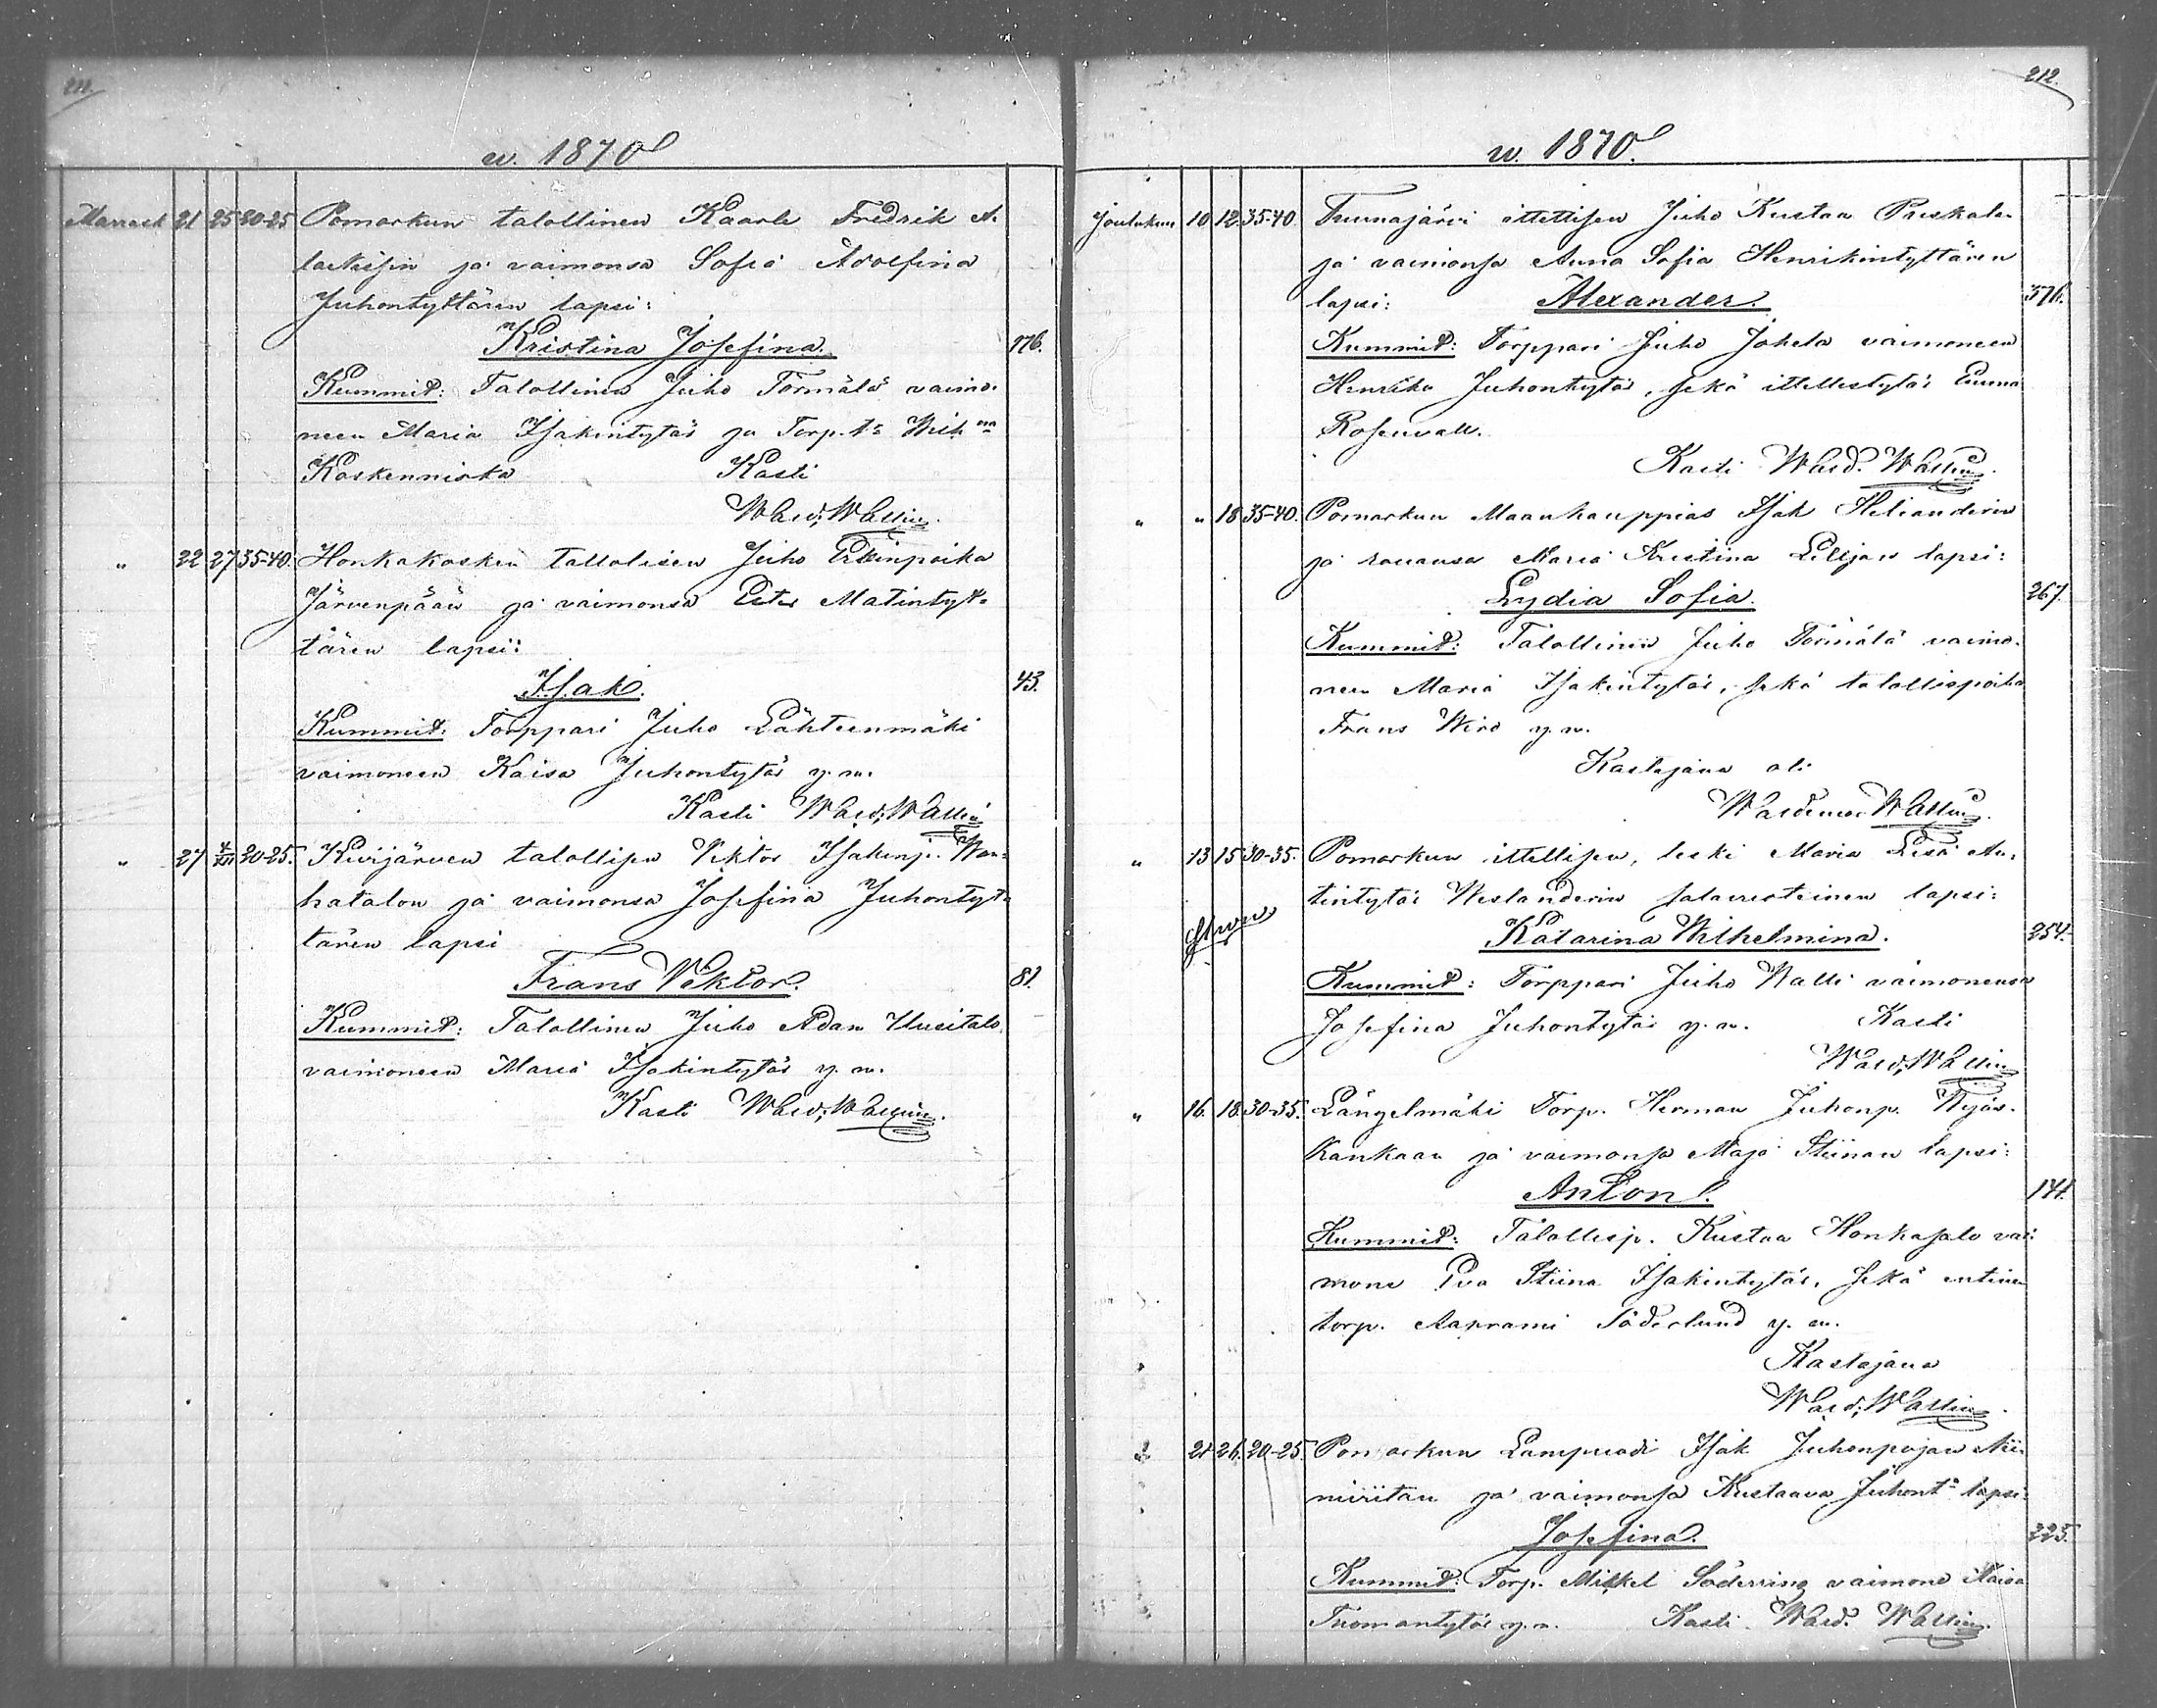 211.
v. 1870
Marrask 21 25 20-25 Pomarkun talollinen Kaarle Fredrik A.
laitissin ja vaimonsa Sofia Adolfina
Juhontyttären lapsi:
Kristina Josefina. 176.
Kummit: Talollinen Juho Törmälä vaimo-
neen Maria Isakintytär ja Torp. tr
Koskenniska Kasti
Wald. Wallin.
" 22 27 35-40. Honkakosken tallolisen Juho Erkinpoika
Järvenpään ja vaimonsa Ester Matintyt-
tären lapsi:
Isak. 43.
Kummit: Torppari Juho Lähteenmäki
vaimoneen Kaisa Juhontytär y.m.
Kasti Wald. Wallin
" 27 4/XII 20-25. Kivijärven talollisen Viktor Isakinp. Wan-
hatalon ja vaimonsa Josefina Juhontyt-
tären lapsi
Frans Viktor. 81.
Kummit: Talollinen Juho Adam Uusitalo
vaimoneen Maria Isakintytär y.m.
Kasti Wald. Wallin.
212.
v. 1870.
Joulukuu 10 12. 35-40. Tuunajärvi ittellisen Juho Kustaa
ja vaimonsa Anna Sofia Henrikintyttären
lapsi: Alexander. 376.
Kummit: Torppari Juho Johela vaimoneen
Henrika Juhontytär, sekä ittellestytär
Rosenvall.
Kasti Wald. Wallin.
" " 18 35-40. Pomarkun Maanhauppias Isak Helianderin
ja rouvansa Maria Kristina Lilljan lapsi:
Lydia Sofia. 267.
Kummit: Talollinen Juho Törmälä vaimo-
neen Maria Isakintytär, sekä talollispoika
Frans Wiro y.m.
Kastajana oli
Waldemar Wallin.
" 13 15 30-35. Pomarkun ittellisen, leski Maria Lisa An-
tintytär Weslanderin salavuoteinen lapsi:
Katarina Wilhelmina. 254.
Kummit: Torppari Juho Walli vaimonensa
Josefina Juhontytär y.m. Kasti
Wald. Wallin
" 16. 18. 30-35. Längelmäki Torp. Herman Juhonp. Syjäs-
kankaan ja vaimonsa Maja Stiinan lapsi:
Anton. 141.
Kummit: Talollisp. Kustaa Honkasalo vai-
mone Eva Stiina Isakintytär, sekä entinen
torp. Aaprami Söderlund y.m.
Kastajana
Wald. Wallin.
" 21 26. 20-25. Pomarkun Lampuodi Isak Juhonpojan Nii-
niiitan ja vaimonsa Kustaava Juhontr lapsi:
Josefina. 225.
Kummit: Torp. Mikkel Söderring vaimone Kaisa
Tuomantytär y.m. Kasti Wald. Wallin.